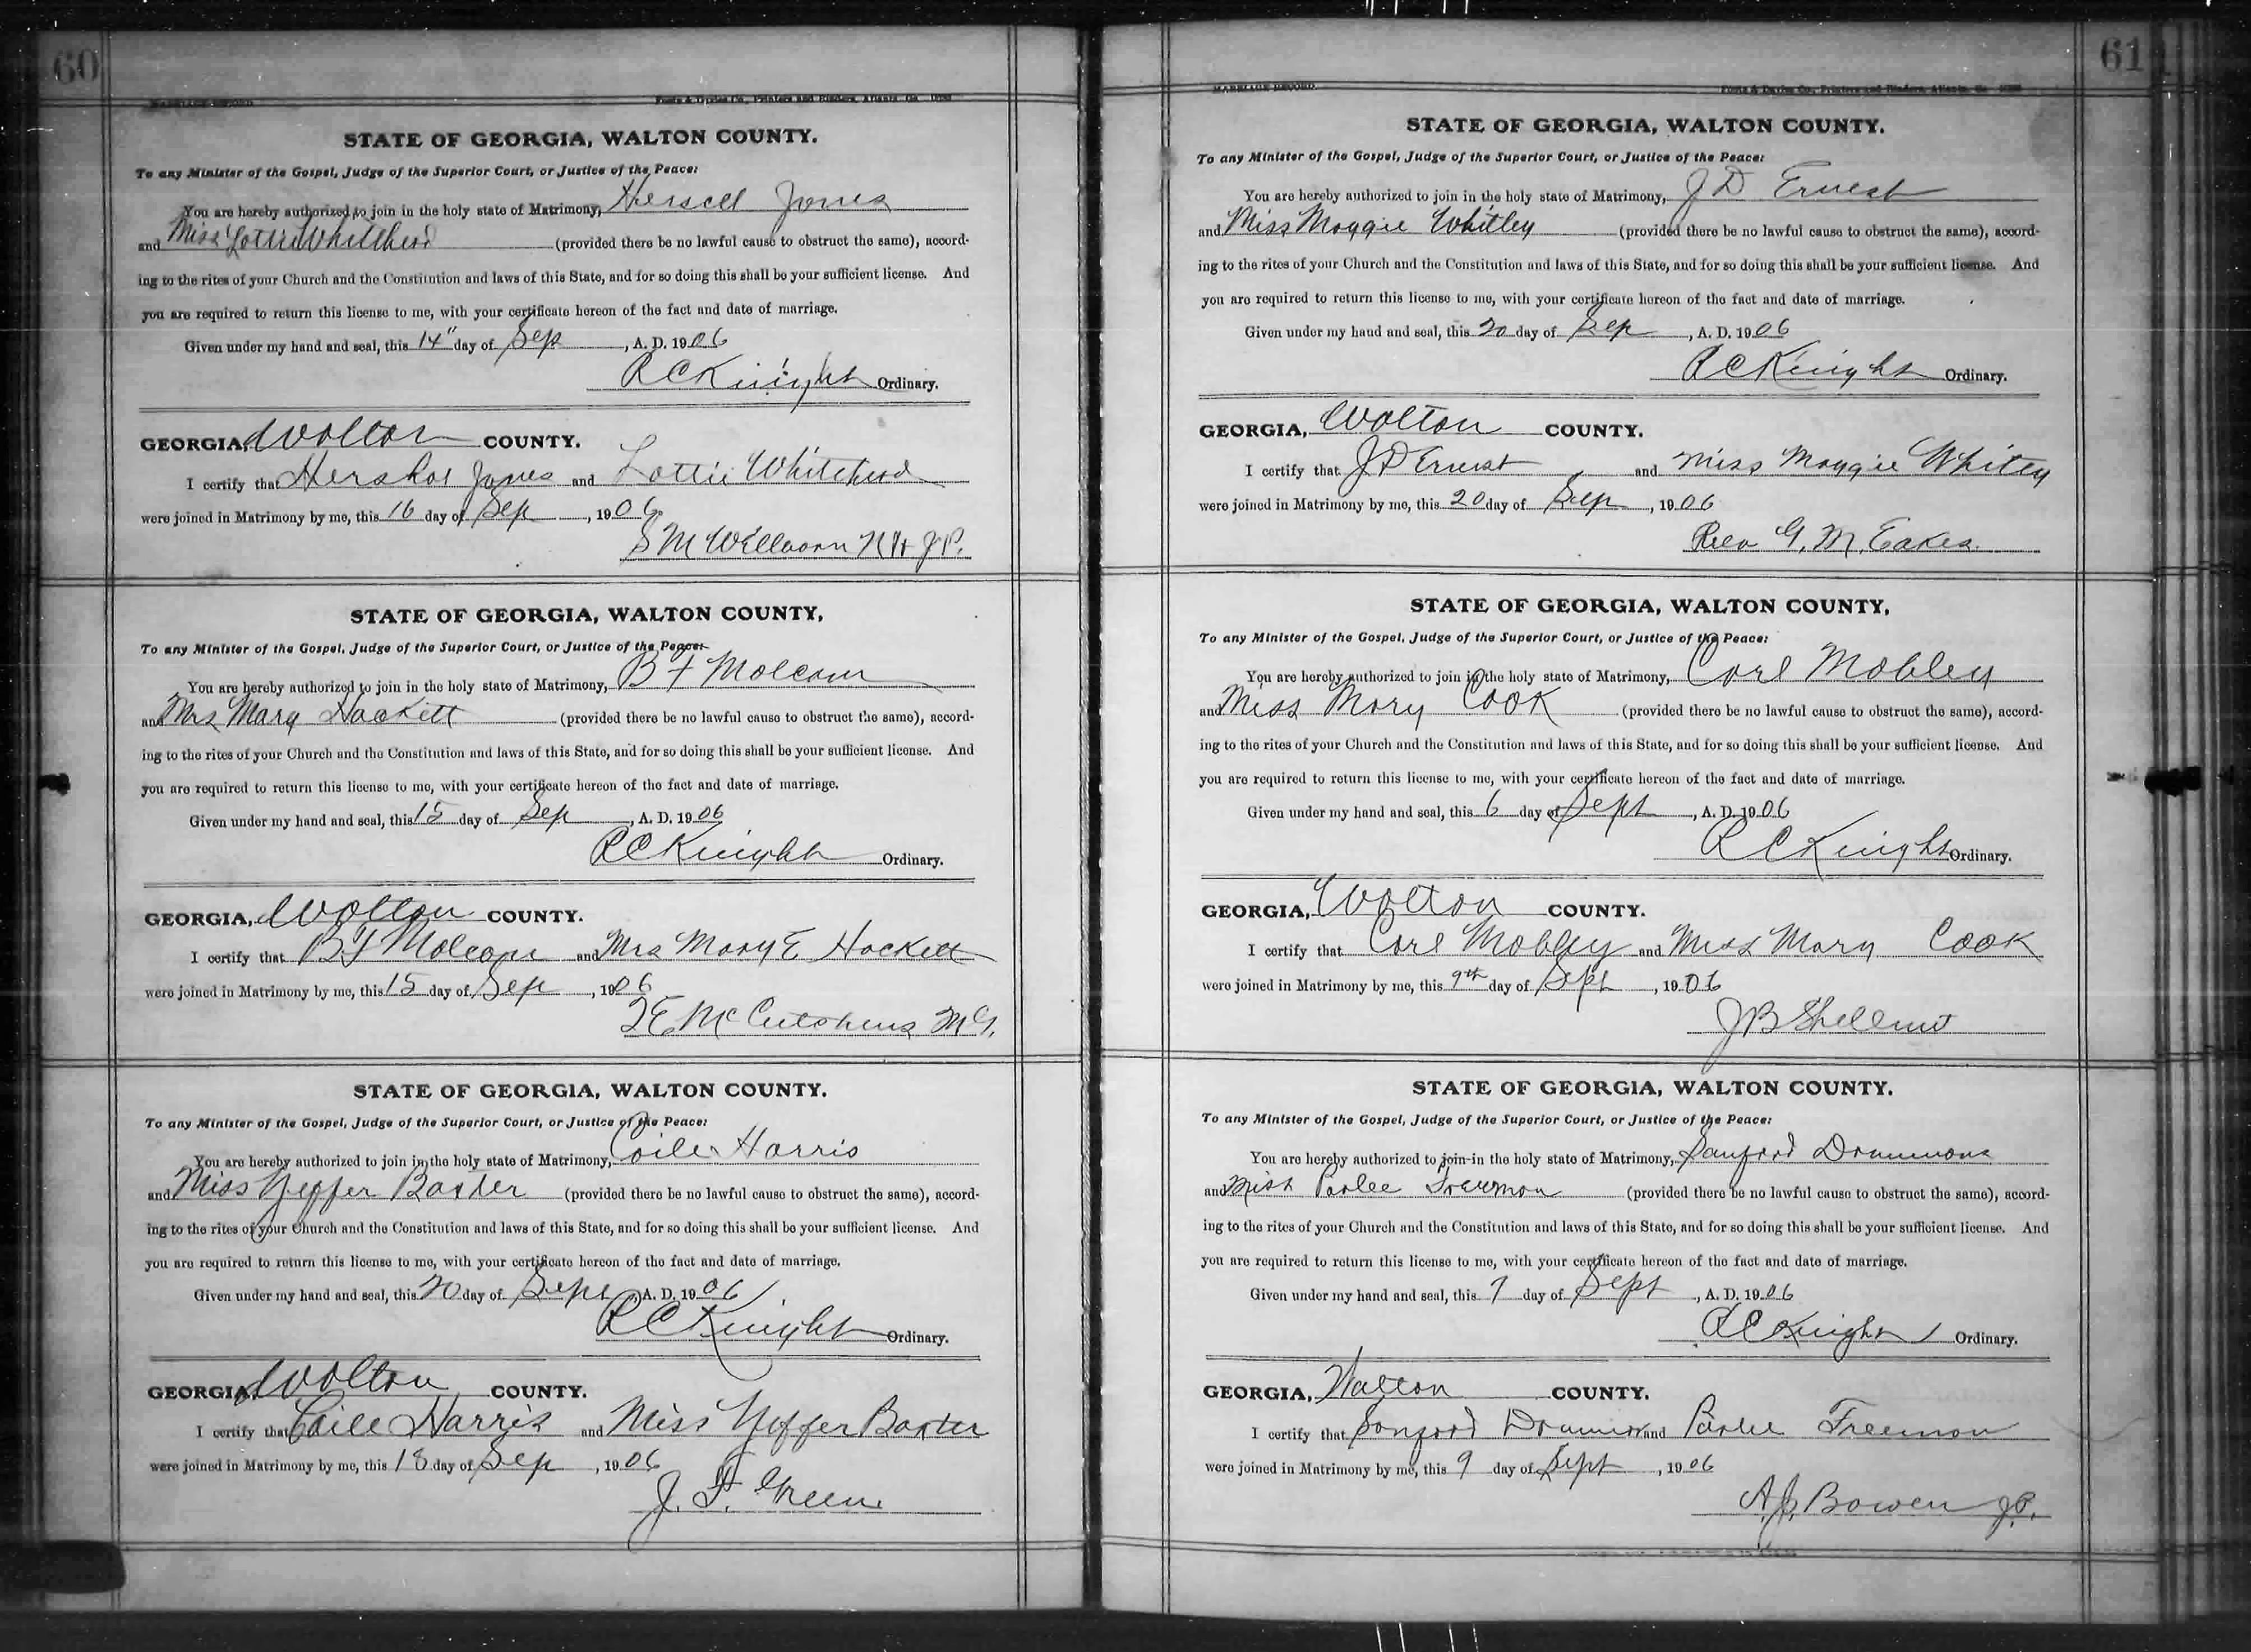 60
MARRIAGE RECORD
Foote & Davies Co., Printers and Binders, Atlanta, Ga.
STATE OF GEORGIA, WALTON COUNTY.
To any Minister of the Gospel, Judge of the Superior Court, or Justice of the Peace:
You are hereby authorized to join in the holy state of Matrimony, Hersell Jones
and Miss Lottie Whitehead (provided there be no lawful cause to obstruct the same), accord-
ing to the rites of your Church and the Constitution and laws of this State, and for so doing this shall be your sufficient license. And
you are required to return this license to me, with your certificate hereon of the fact and date of marriage.
Given under my hand and seal, this 14" day of Sep, A. D. 1906
R C Knight Ordinary.
GEORGIA, Walton COUNTY.
I certify that Hershal Jones and Lottie Whitehead
were joined in Matrimony by me, this 16 day of Sep, 1906
S M Wellborn J.P.
STATE OF GEORGIA, WALTON COUNTY,
To any Minister of the Gospel, Judge of the Superior Court, or Justice of the Peace:
You are hereby authorized to join in the holy state of Matrimony, B F Malcom
and Mrs Mary Hackett (provided there be no lawful cause to obstruct the same), accord-
ing to the rites of your Church and the Constitution and laws of this State, and for so doing this shall be your sufficient license. And
you are required to return this license to me, with your certificate hereon of the fact and date of marriage.
Given under my hand and seal, this 15 day of Sep, A. D. 1906
R C Knight Ordinary.
GEORGIA, Walton COUNTY.
I certify that B F Malcom and Mrs Mary E Hackett
were joined in Matrimony by me, this 15 day of Sep, 1906
McCutchens M G.
STATE OF GEORGIA, WALTON COUNTY.
To any Minister of the Gospel, Judge of the Superior Court, or Justice of the Peace:
You are hereby authorized to join in the holy state of Matrimony, Coile Harris
and Miss Neffer Baxter (provided there be no lawful cause to obstruct the same), accord-
ing to the rites of your Church and the Constitution and laws of this State, and for so doing this shall be your sufficient license. And
you are required to return this license to me, with your certificate hereon of the fact and date of marriage.
Given under my hand and seal, this 20 day of Sept, A. D. 1906
R C Knight Ordinary.
GEORGIA, Walton COUNTY.
I certify that Coile Harris and Miss Neffer Baxter
were joined in Matrimony by me, this 18 day of Sep, 1906
J. F. Green
61
MARRIAGE RECORD
Foote & Davies Co., Printers and Binders, Atlanta, Ga.
STATE OF GEORGIA, WALTON COUNTY.
To any Minister of the Gospel, Judge of the Superior Court, or Justice of the Peace:
You are hereby authorized to join in the holy state of Matrimony, J D Ernest
and Miss Maggie Whitley (provided there be no lawful cause to obstruct the same), accord-
ing to the rites of your Church and the Constitution and laws of this State, and for so doing this shall be your sufficient license. And
you are required to return this license to me, with your certificate hereon of the fact and date of marriage.
Given under my hand and seal, this 20 day of Sep, A. D. 1906
R C Knight Ordinary.
GEORGIA, Walton COUNTY.
I certify that J D Ernest and Miss Maggie Whitey
were joined in Matrimony by me, this 20 day of Sep, 1906
Rev G. M. Eakes.
STATE OF GEORGIA, WALTON COUNTY,
To any Minister of the Gospel, Judge of the Superior Court, or Justice of the Peace:
You are hereby authorized to join in the holy state of Matrimony, Carl Mobley
and Miss Mary Cook (provided there be no lawful cause to obstruct the same), accord-
ing to the rites of your Church and the Constitution and laws of this State, and for so doing this shall be your sufficient license. And
you are required to return this license to me, with your certificate hereon of the fact and date of marriage.
Given under my hand and seal, this 6 day of Sept, A. D. 1906
R C Knight Ordinary.
GEORGIA, Walton COUNTY.
I certify that Carl Mobley and Miss Mary Cook
were joined in Matrimony by me, this 9th day of Sept, 1906
J B Shellnut
STATE OF GEORGIA, WALTON COUNTY.
To any Minister of the Gospel, Judge of the Superior Court, or Justice of the Peace:
You are hereby authorized to join in the holy state of Matrimony, Sanford Drummons
and Miss Parlee Freemon (provided there be no lawful cause to obstruct the same), accord-
ing to the rites of your Church and the Constitution and laws of this State, and for so doing this shall be your sufficient license. And
you are required to return this license to me, with your certificate hereon of the fact and date of marriage.
Given under my hand and seal, this 7 day of Sept, A. D. 1906
R C Knight Ordinary.
GEORGIA, Walton COUNTY.
I certify that Sanford and Parlee Freemon
were joined in Matrimony by me, this 9 day of Sept, 1906
A. J. Bowen J.P.